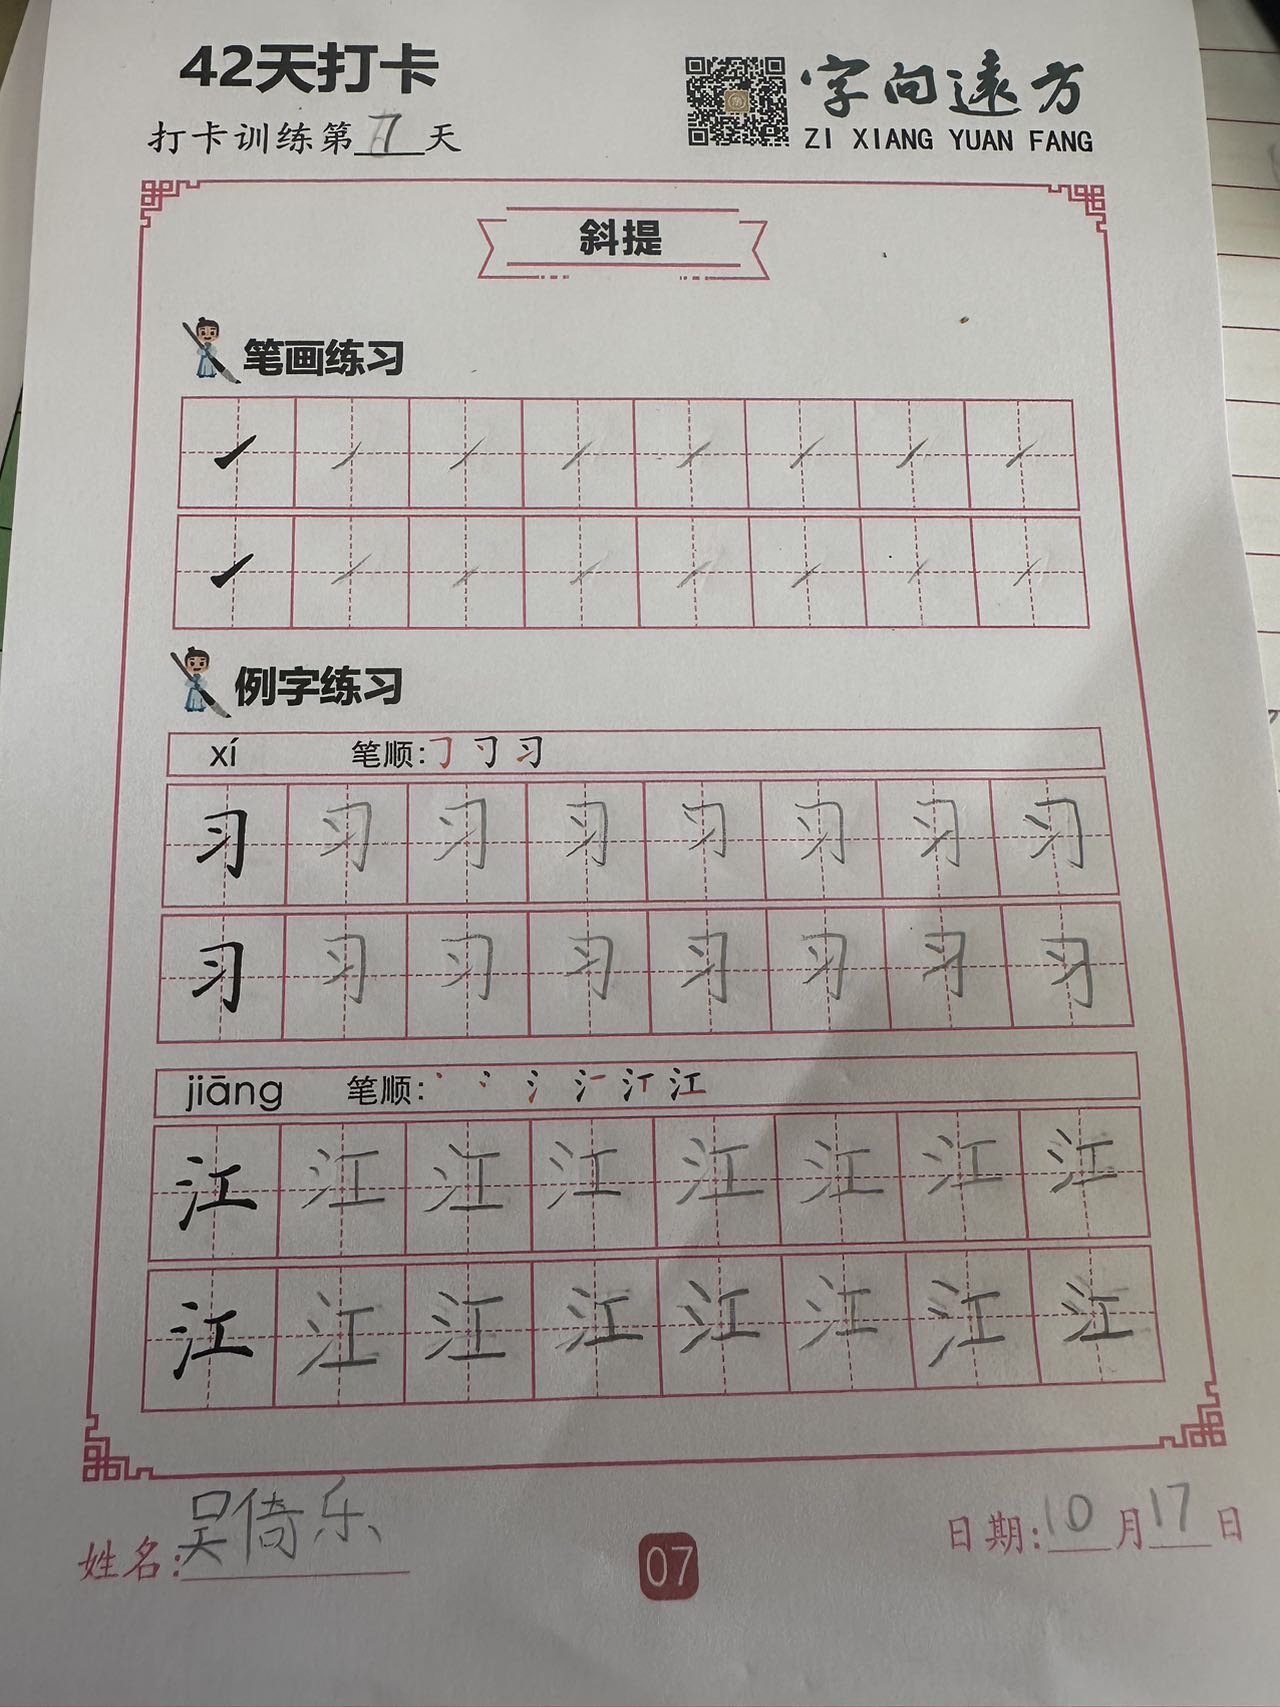 42天打卡
字向远方
打卡训练第7天
ZI XIANG YUAN FANG
斜提
笔画练习
例字练习
xí 笔顺:
习 习 习 习 习 习 习 习
习 习 习 习 习 习 习 习
jiāng 笔顺:
江 江 江 江 江 江 江 江
江 江 江 江 江 江 江 江
姓名:吴倚乐
07
日期:10月17日